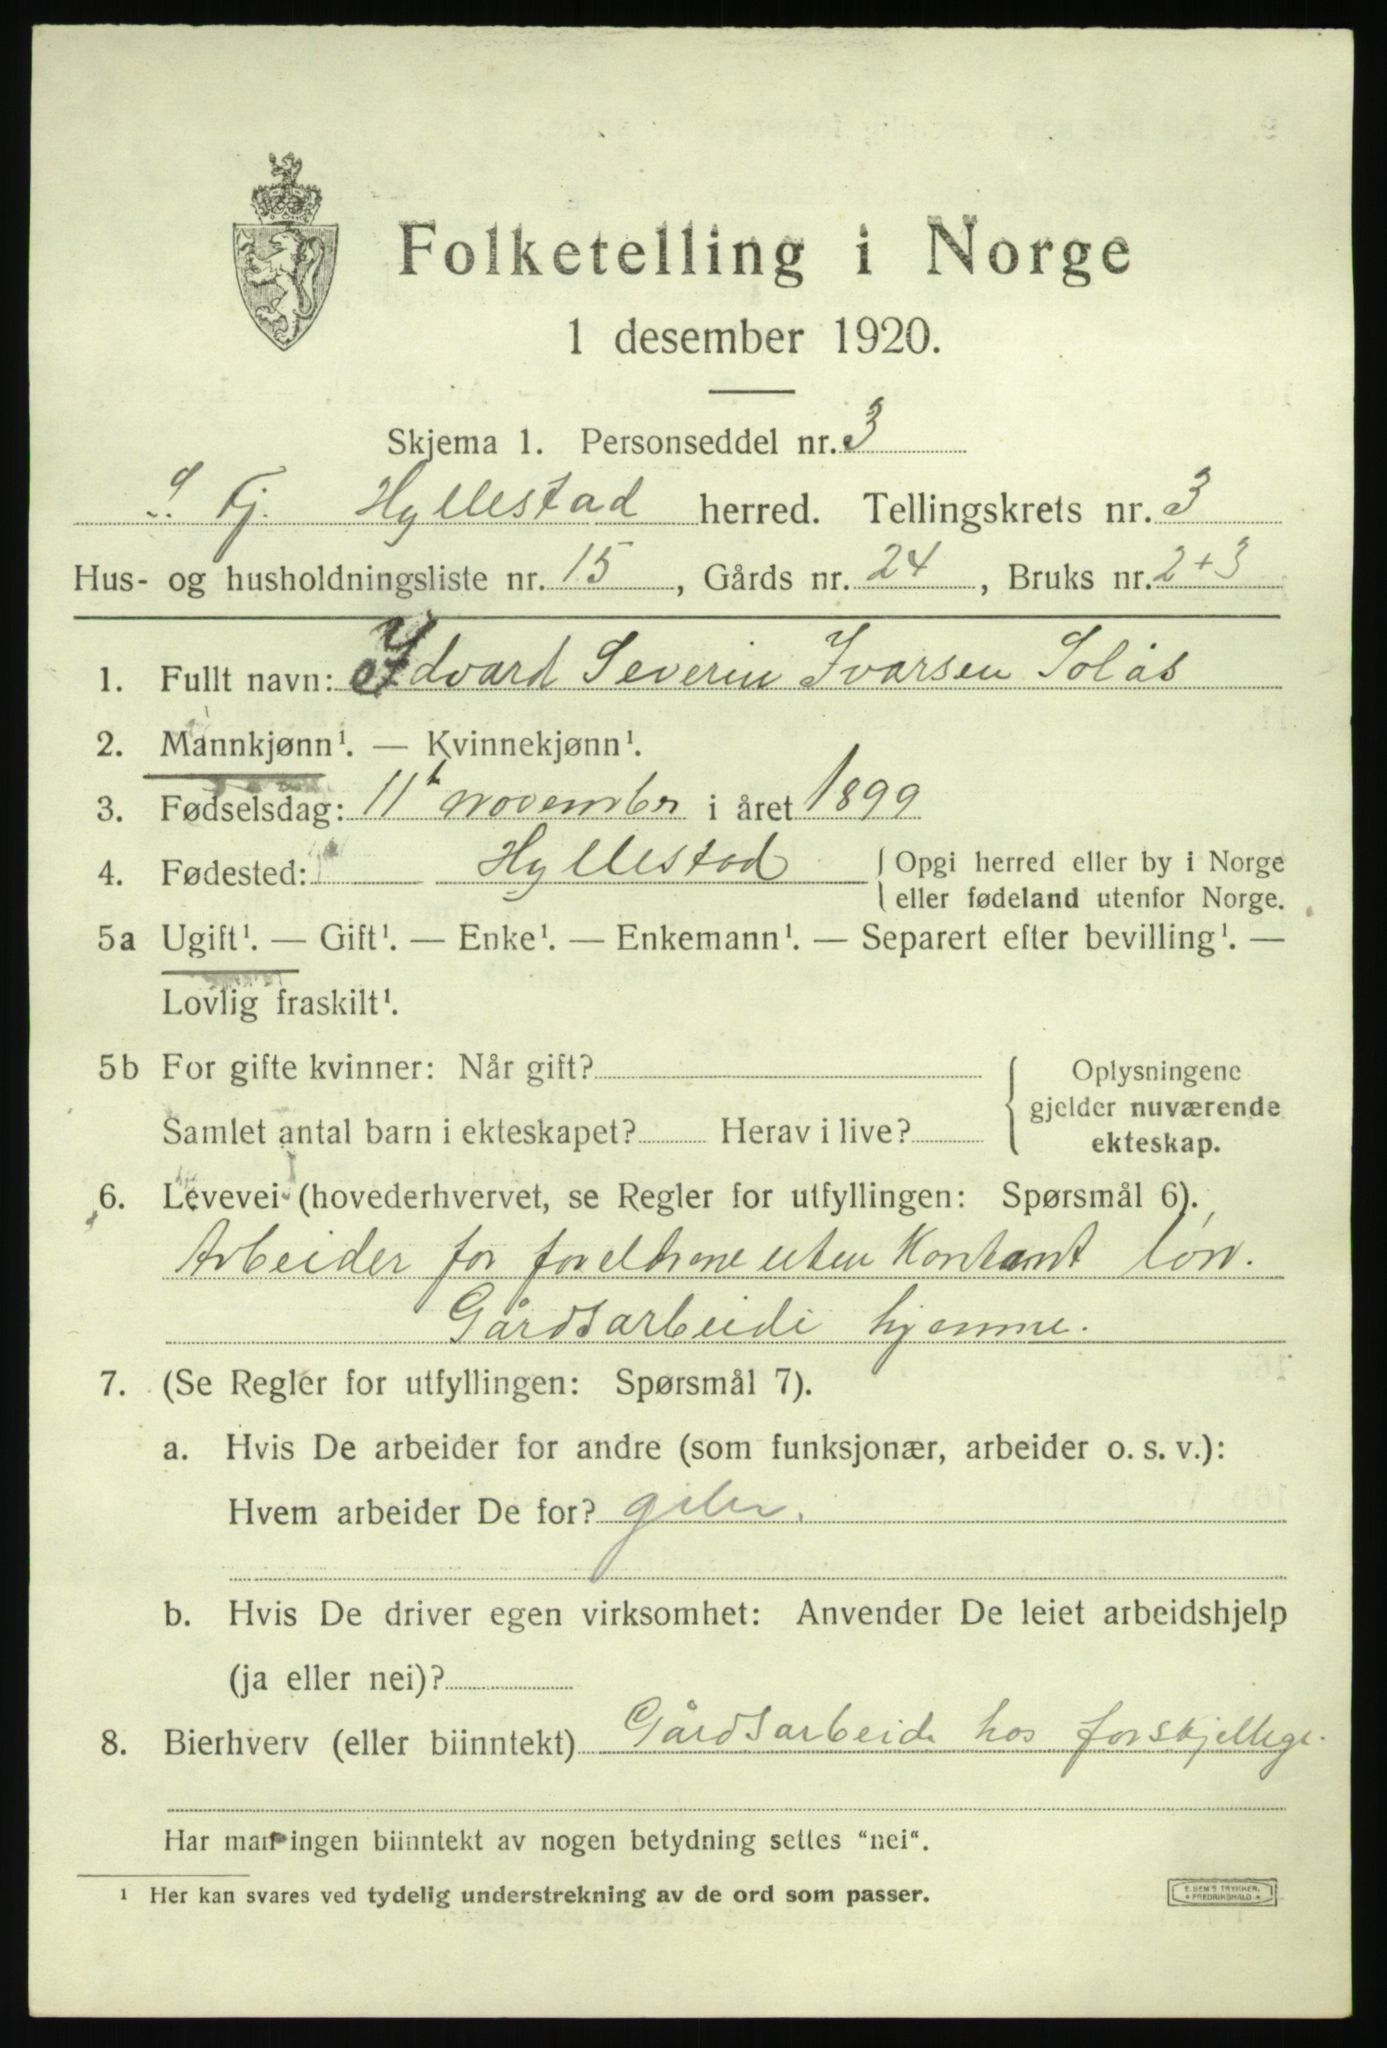 Folketelling i Norge
1 desember 1920.
Skjema 1. Personseddel nr. 3
S. Fj. Hyllestad herred. Tellingskrets nr. 3
Hus- og husholdningsliste nr. 15, Gårds nr. 24, Bruks nr. 2+3
1. Fullt navn: Edvard Severin Ivarsen Solås
2. Mannkjønn¹. — Kvinnekjønn¹.
3. Fødselsdag: 11 november i året 1899
4. Fødested: Hyllestad { Opgi herred eller by i Norge
eller fødeland utenfor Norge.
5a Ugift¹. — Gift¹. — Enke¹. — Enkemann¹. — Separert efter bevilling¹. —
Lovlig fraskilt¹.
5b For gifte kvinner: Når gift?
Samlet antal barn i ekteskapet? Herav i live?
{ Oplysningene
gjelder nuværende
ekteskap.
6. Levevei (hovederhvervet, se Regler for utfyllingen: Spørsmål 6).
Arbeider for foreldrene uten Kontant lön.
Gårdsarbeide hjemme.
7. (Se Regler for utfyllingen: Spørsmål 7).
a. Hvis De arbeider for andre (som funksjonær, arbeider o. s. v.):
Hvem arbeider De for?
b. Hvis De driver egen virksomhet: Anvender De leiet arbeidshjelp
(ja eller nei)?
8. Bierhverv (eller biinntekt) Gårdsarbeide hos forskjellige.
Har man ingen biinntekt av nogen betydning settes "nei".
¹ Her kan svares ved tydelig understrekning av de ord som passer.
E. SEM'S TRYKKERI,
FREDRIKSHALD